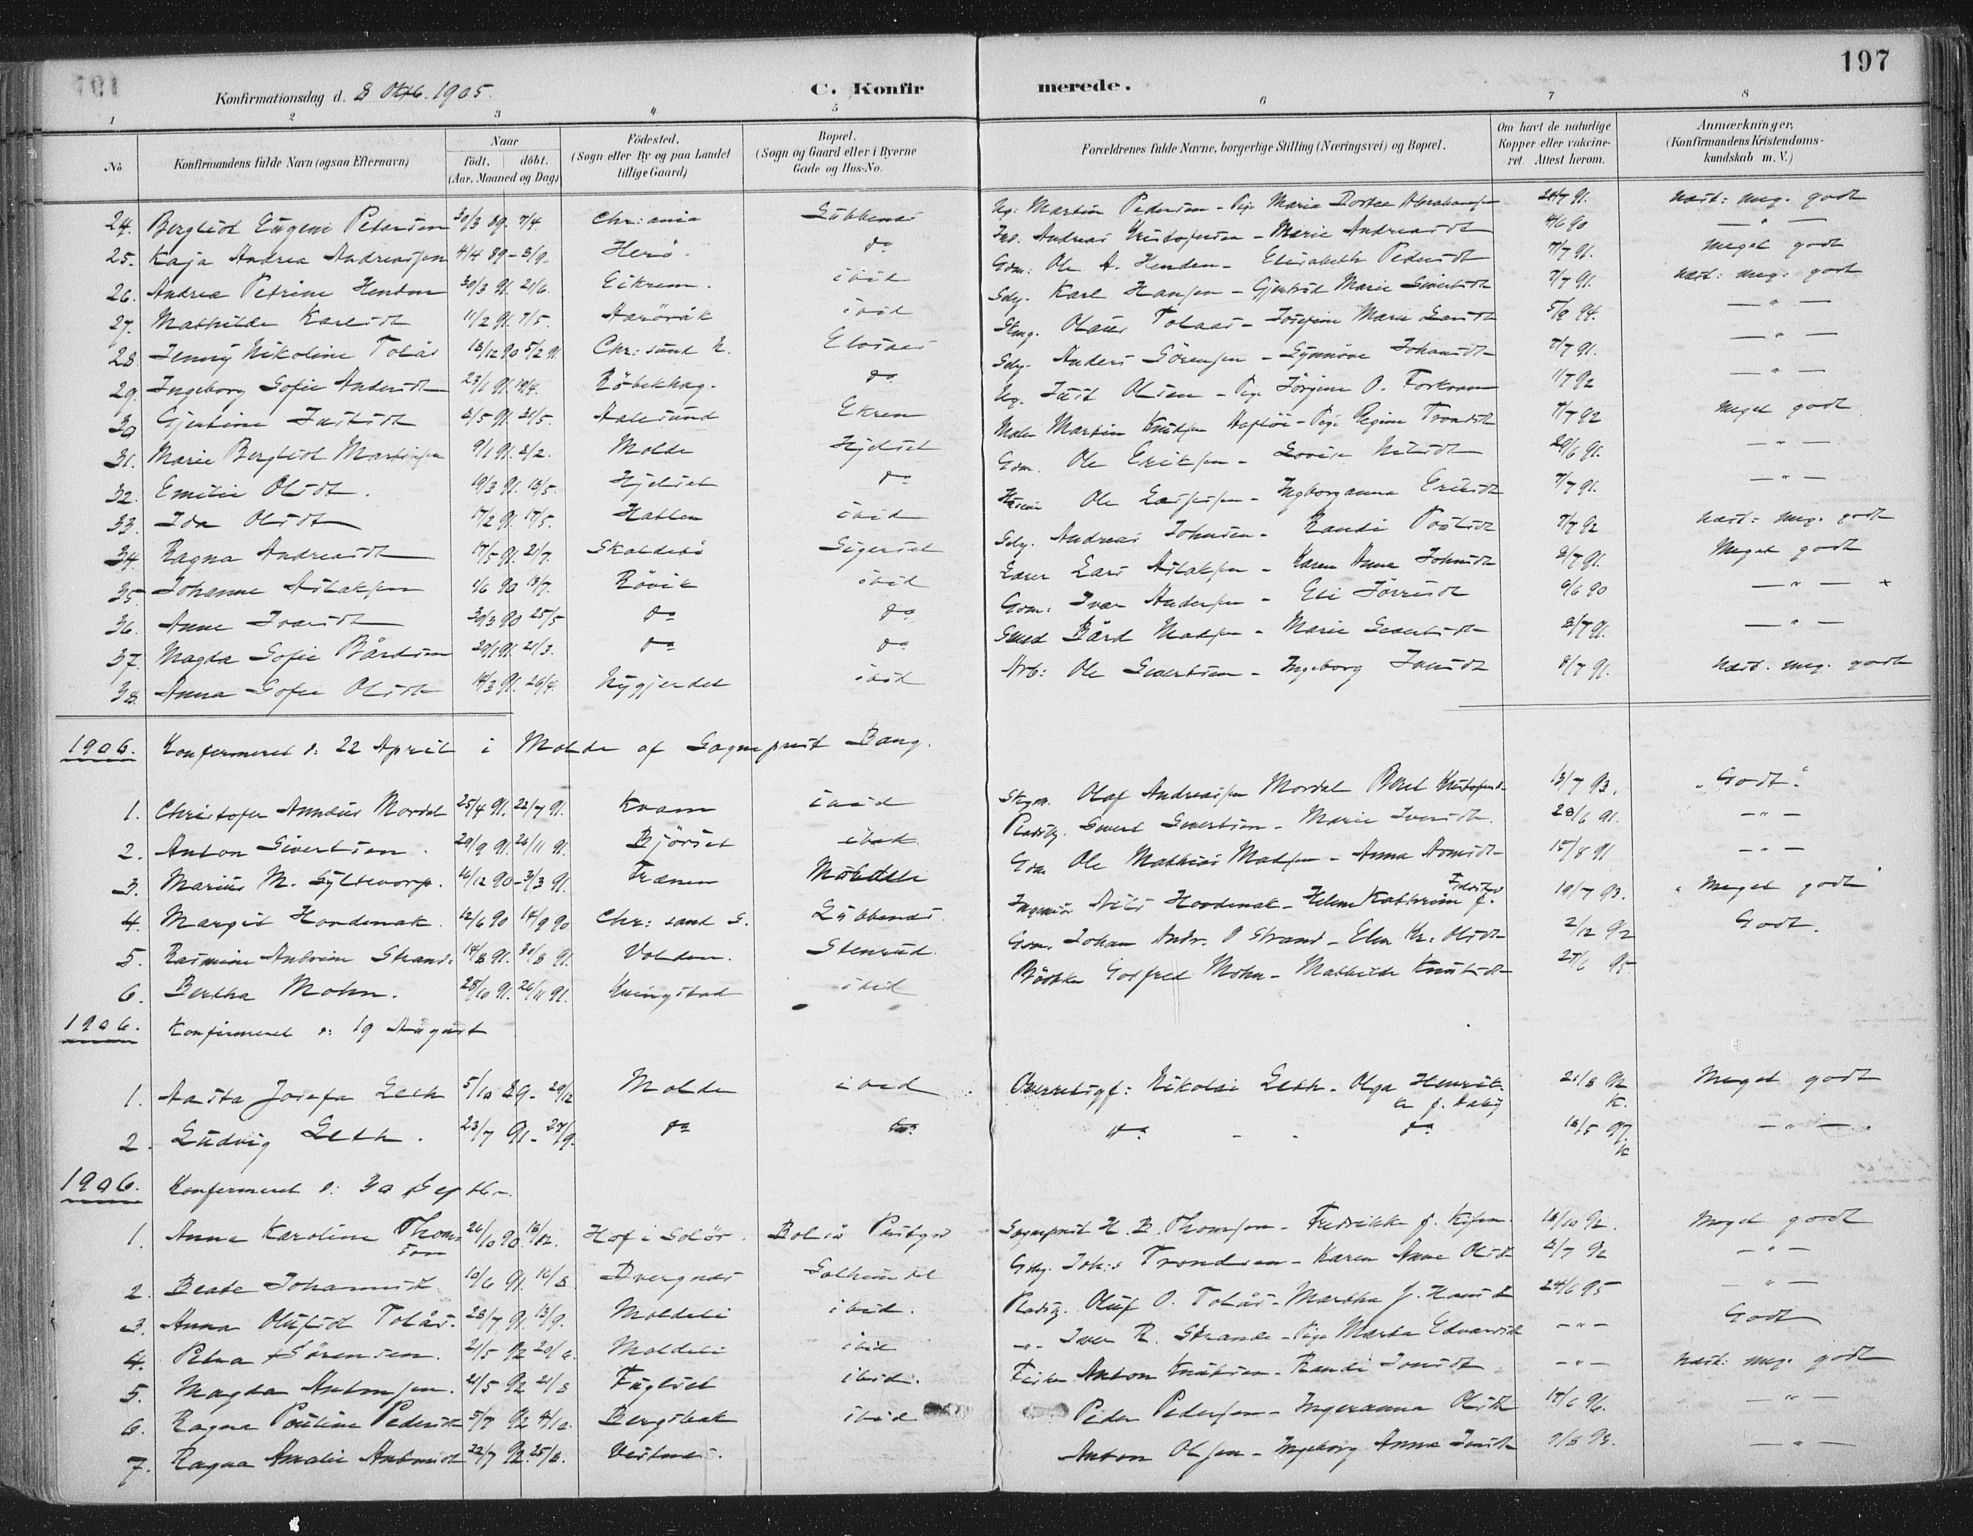 197
Konfirmationsdag d. 8 Oktb. 1905.
C. Konfirmerede.
1 2 3 4 5 6 7 8
No. Konfirmandens fulde Navn (ogsaa Efternavn) Naar født. døbt. (Aar, Maaned og Dag) Födested. (Sogn eller By og paa Landet tillige Gaard) Bopæl. (Sogn og Gaard eller i Byerne Gade og Hus-No. Forældrenes fulde Navne, borgerlige Stilling (Næringsvei) og Bopæl. Om havt de naturlige Kopper eller vakcineret. Attest herom. Anmærkninger. (Konfirmandens Kristendomskundskab m. V.)
24. Bergliot Eugenie Petersen 30/3 89. 7/4. Chr:ania Lübbenes Ug: Martin Pedersen - Pige Maria Dortea Abrahamsen 91. næst: meg. godt
25. Kaja Andrea Andreassen 4/4 89 - 3/9. Herö. do Andreas Kristofersen - Marie Andreasdt 4/6 90 - " -
26. Andrea Petrine Henden 30/3 91. 21/6. Eikrem. ibid Gdm: Ole A. Henden - Elisabeth Pedersdt 7/7 91. meget godt
27. Mathilde Karlsdt 11/2 91. 7/5. Aarövåk ibid Gdbr. Karl Hansen - Gjertrud Marie Sivertsdt 7/7 91. næst: meg. godt
28. Jenny Nikoline Tolås 13/12 90 5/2 91 Chr:sund N. Elvsnes Olaus Tolaas - Josefine Marie Larsdt 94. - " -
29. Ingeborg Sofie Andersdt 23/1 91. Röbekhag. do Anders Sörensen - Synnöve Johansdt 7/7 91. - " -
30 Gjertine Justsdt 2/5 91. 31/5. Aalesund Ekrem Ug. Just Olsen - Pige Jörgine O. Torkvam 92 - " -
31. Marie Bergliot Martinsen 9/1 91. 2/2. Molde Hjelset Maler Martin Knudsen - Pige Regine Trondsdt 7/7 92 meget godt
32. Emilie Olsdt. 19/3 91. 18/5. Hjelset do Gdm. Ole Eriksen - Lovise Nilsdt 29/6 91. - " -
33. Ida Olsdt 17/2 91. 17/5. Hatlen ibid Ole Larssen - Ingeborganna Eriksdt 7/7 91. - " -
34 Ragna Andreasdt 17/5 91. 21/7. Skaldebö Sigerset Andreas Johnsen - Randi Povlsdt 7/7 92 næst: meg. godt
35. Johanne Aslaksen 1/6 90 13/7. Rövik ibid Lærer Lars Aslaksen - Karen Anne Johnsdt 2/7 91. Meget godt
36. Anne Ivarsdt 30/3 90 25/5 do do Gdm: Ivar Andersen - Eli Jörrisdt 6/6 90 - " - x
37. Magda Sofie Bårdsen 20/1 91. 21/3. do do Smed Bård Madsen - Marie Sivertsdt 2/7 91. - " -
38. Anna Sofie Olsdt 14/3 91. 26/4. Nygjerdet ibid Arb: Ole Sivertsen - Ingeborg Iversdt 8/7 91. næst. meg. godt
1906. Konfirmeret d: 22 April i Molde af Sogneprest Bang.
1. Christofer Amdeus Mordal 25/4 91. 22/7 91. Kvam ibid Olaf Andreassen Mordal Beret Kristofersdt 13/7 93. "Godt."
2. Anton Sivertsen. 29/9 91. 26/11 91. Björset ibid. Pladsbg. Sivert Sivertsen - Marie Iversdt. 28/6 91. - " -
3. Marius M. Syltevorp. 16/12 90 - 3/3 91. Frænen Moldeli Gdm Ole Mathias Madsen - Anna Arnesdt 15/8 91 - " -
4. Margit Hovdenak. 12/6 90 14/9 90 Chr:sand S. Lübbenes Ingeniör Nils Hovdenak - Helene Kathrine f. 19/7 93. "Meget godt"
5. Rasmine Antonie Strand. 14/8 91. 30/8 91. Volden. Stenrud. Gdm. Johan Andr. O Strand - Elen Kr. Olsdt 2/12 92 Godt.
6. Bertha Mohn. 25/10 91. 26/11 91. Kringstad ibid Bödker Godfred Mohn - Mathilde Knutsdt 95
1906. Konfirmeret d: 19 August
1. Aasta Josefa Leth 5/10 89 - 29/12 Molde ibid Overretssgf: Nikolai Leth - Olga Henrikke f. Aaby 21/8 92 K. Meget godt
2. Ludvig Leth. 23/7 91 - 27/9. do do do - - do 18/5 97. K - " -
1906. Konfirmeret d: 30 Septb.
1. Anna Karoline Thomsson 26/10 90. 18/12. Hof i Solör. Bolsö Prstgrd Sogneprest H. B. Thomsen - Fredrikke f. 18/10 92. Meget godt
2. Beate Johansdt. 10/6 91. 16/8 Dvergnes Solheimdal Gdbg. Joh:s Trondsen - Karen Anne Olsdt 2/7 92 - " -
3. Anna Olufsd Tolås. 28/7 91. 13/9. Moldeli ibid. Pladsbg. Oluf O. Tolås - Martha J. Hansdt 24/6 95 - " -
4. Petra Sörensen. 21/5 92 20/6. Moldeli ibid - " - Iver R. Strande - Pige Marta Edvardsdt - " - Godt
5. Magda Antonsen. 21/5 92 21/8 Fuglset ibid. Fisker Anton Knutsen - Randi Jonsdt - " - næst: meg. godt
6. Ragna Pouline Pedersdt 5/7 92 Bergsbak ibid Peder Pedersen - Ingeranna Olsdt 15/6 96. - " -
7. Ragna Amalie Antonsdt 22/7 92. 25/8. Vestnes. Anton Olsen - Ingeborg Anna Jonsdt 9/8 93. - " -